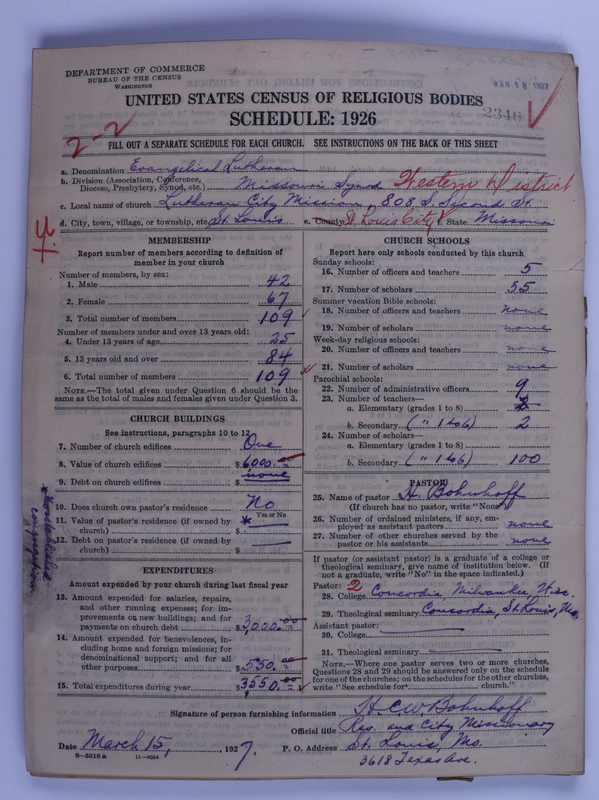 DEPARTMENT OF COMMERCE
BUREAU OF THE CENSUS
WASHINGTON
UNITED STATES CENSUS OF RELIGIOUS BODIES
SCHEDULE: 1926
2346
2-2
FILL OUT A SEPARATE SCHEDULE FOR EACH CHURCH. SEE INSTRUCTIONS ON THE BACK OF THIS SHEET
a. Denomination Evangelical Lutheran
b. Division (Association, Conference, Diocese, Presbytery, Synod, etc.) Missouri Synod Western District
c. Local name of church Lutheran City Mission, 808 S. Second St.
d. City, town, village, or township, etc. St. Louis e. County St Louis City f. State Missouri
MEMBERSHIP
Report number of members according to definition of
member in your church
Number of members, by sex:
1. Male 42
2. Female 67
3. Total number of members 109
Number of members under and over 13 years old:
4. Under 13 years of age 25
5. 13 years old and over 84
6. Total number of members 109
NOTE.—The total given under Question 6 should be the
same as the total of males and females given under Question 3.
CHURCH BUILDINGS
See instructions, paragraphs 10 to 12
7. Number of church edifices One
8. Value of church edifices $6000.00
9. Debt on church edifices $ none
10. Does church own pastor's residence? No
Yes or No
11. Value of pastor's residence (if owned by
church) * $
12. Debt on pastor's residence (if owned by
church) $
EXPENDITURES
Amount expended by your church during last fiscal year
13. Amount expended for salaries, repairs,
and other running expenses; for im-
provements or new buildings; and for
payments on church debt $3,000.00
14. Amount expended for benevolences, in-
cluding home and foreign missions; for
denominational support; and for all
other purposes $550.00
15. Total expenditures during year $3550.00
CHURCH SCHOOLS
Report here only schools conducted by this church
Sunday schools:
16. Number of officers and teachers 5
17. Number of scholars 55
Summer vacation Bible schools:
18. Number of officers and teachers none
19. Number of scholars none
Week-day religious schools:
20. Number of officers and teachers none
21. Number of scholars none
Parochial schools:
22. Number of administrative officers 9
23. Number of teachers—
a. Elementary (grades 1 to 8)
b. Secondary (" 1 to 6) 2
24. Number of scholars—
a. Elementary (grades 1 to 8)
b. Secondary (" 1 to 6) 100
PASTOR
25. Name of pastor H. Bohnhoff
(If church has no pastor, write "None")
26. Number of ordained ministers, if any, em-
ployed as assistant pastors none
27. Number of other churches served by the
pastor or his assistants none
If pastor (or assistant pastor) is a graduate of a college or
theological seminary, give name of institution below. (If
not a graduate, write "No" in the space indicated.)
Pastor: 2
28. College Concordia, Milwaukee, Wisc.
29. Theological seminary Concordia, St. Louis, Mo.
Assistant pastor:
30. College
31. Theological seminary
NOTE.—Where one pastor serves two or more churches,
Questions 28 and 29 should be answered only on the schedule
for one of the churches; on the schedules for the other churches,
write "See schedule for church."
Signature of person furnishing information H. C. W. Bohnhoff
Official title Rev. and City Missionary
Date March 15, 1927. P. O. Address St. Louis, Mo.
3618 Texas Ave.
8-5518a 11-9004